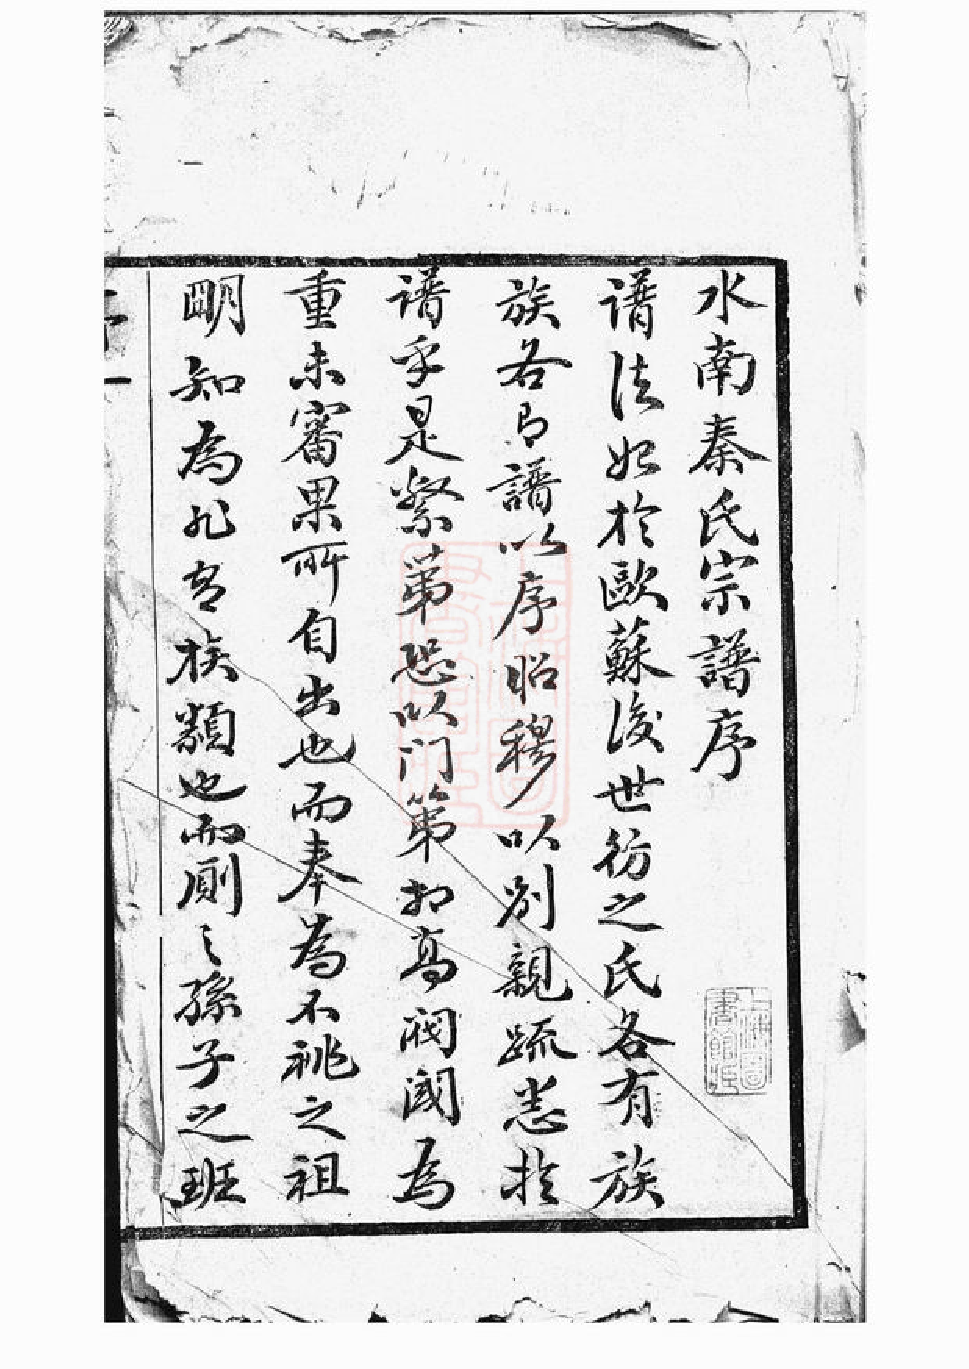 水南秦氏宗譜序
譜法始於歐蘇後世衍之氏各有族
族各有譜以序昭穆以別親疏悉於
譜乎是繫第恐以門第相高閥閱為
重未審果所自出也而奉為不祧之祖
明知為非吾族類也而廁之孫子之班
序
一
上海圖書館藏